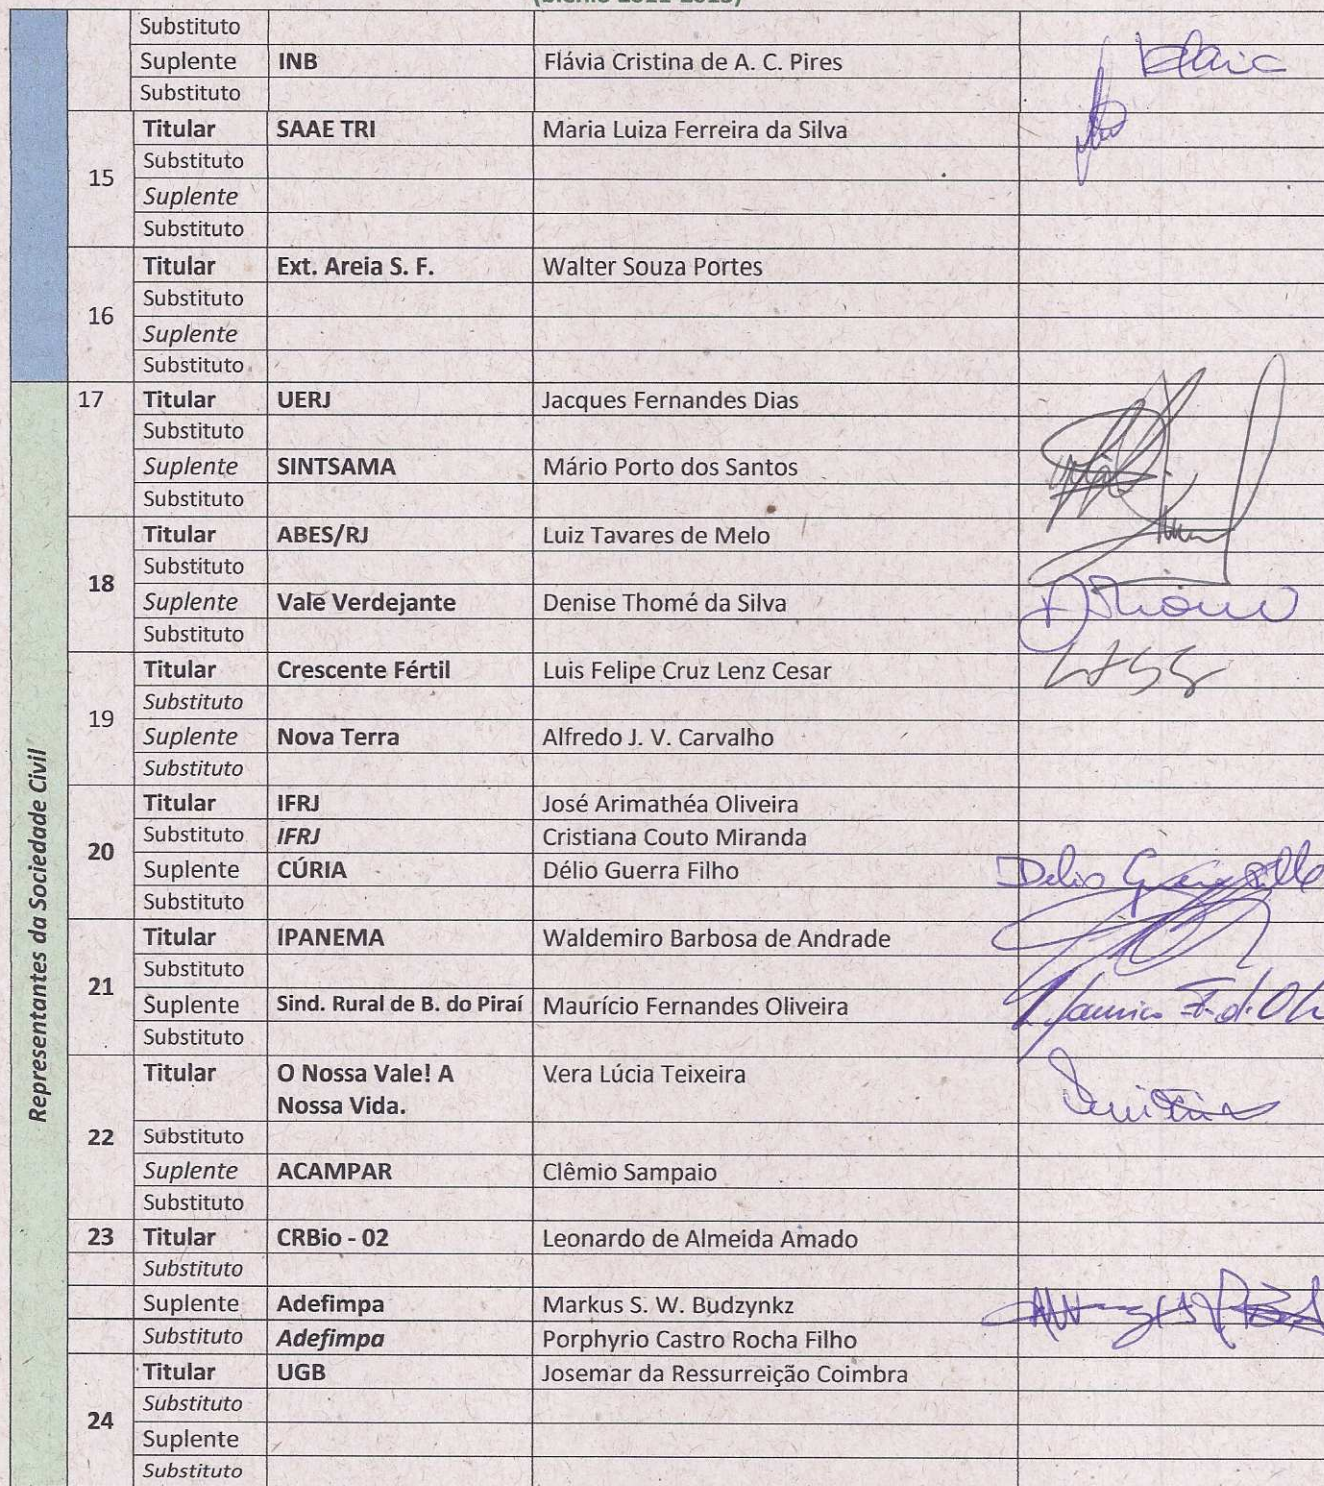 (biênio 2011-2013)
Substituto
Suplente INB Flávia Cristina de A. C. Pires
Substituto
15
Titular SAAE TRI Maria Luiza Ferreira da Silva
Substituto
Suplente
Substituto
16
Titular Ext. Areia S. F. Walter Souza Portes
Substituto
Suplente
Substituto
Representantes da Sociedade Civil
17 Titular UERJ Jacques Fernandes Dias
Substituto
Suplente SINTSAMA Mário Porto dos Santos
Substituto
18
Titular ABES/RJ Luiz Tavares de Melo
Substituto
Suplente Vale Verdejante Denise Thomé da Silva
Substituto
19
Titular Crescente Fértil Luis Felipe Cruz Lenz Cesar
Substituto
Suplente Nova Terra Alfredo J. V. Carvalho
Substituto
20
Titular IFRJ José Arimathéa Oliveira
Substituto IFRJ Cristiana Couto Miranda
Suplente CÚRIA Délio Guerra Filho Delio Guerra Filho
Substituto
21
Titular IPANEMA Waldemiro Barbosa de Andrade
Substituto
Suplente Sind. Rural de B. do Piraí Maurício Fernandes Oliveira
Substituto
22
Titular O Nossa Vale! A Vera Lúcia Teixeira
Nossa Vida.
Substituto
Suplente ACAMPAR Clêmio Sampaio
Substituto
23 Titular CRBio - 02 Leonardo de Almeida Amado
Substituto
Suplente Adefimpa Markus S. W. Budzynkz
Substituto Adefimpa Porphyrio Castro Rocha Filho
24
Titular UGB Josemar da Ressurreição Coimbra
Substituto
Suplente
Substituto